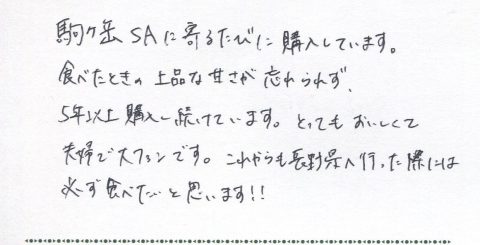 駒ヶ岳SAに寄るたびに購入しています。
食べたときの上品な甘さが忘れられず、
5年以上購入し続けています。とってもおいしくて
夫婦で大ファンです。これからも長野県へ行った際には
必ず食べたいと思います!!